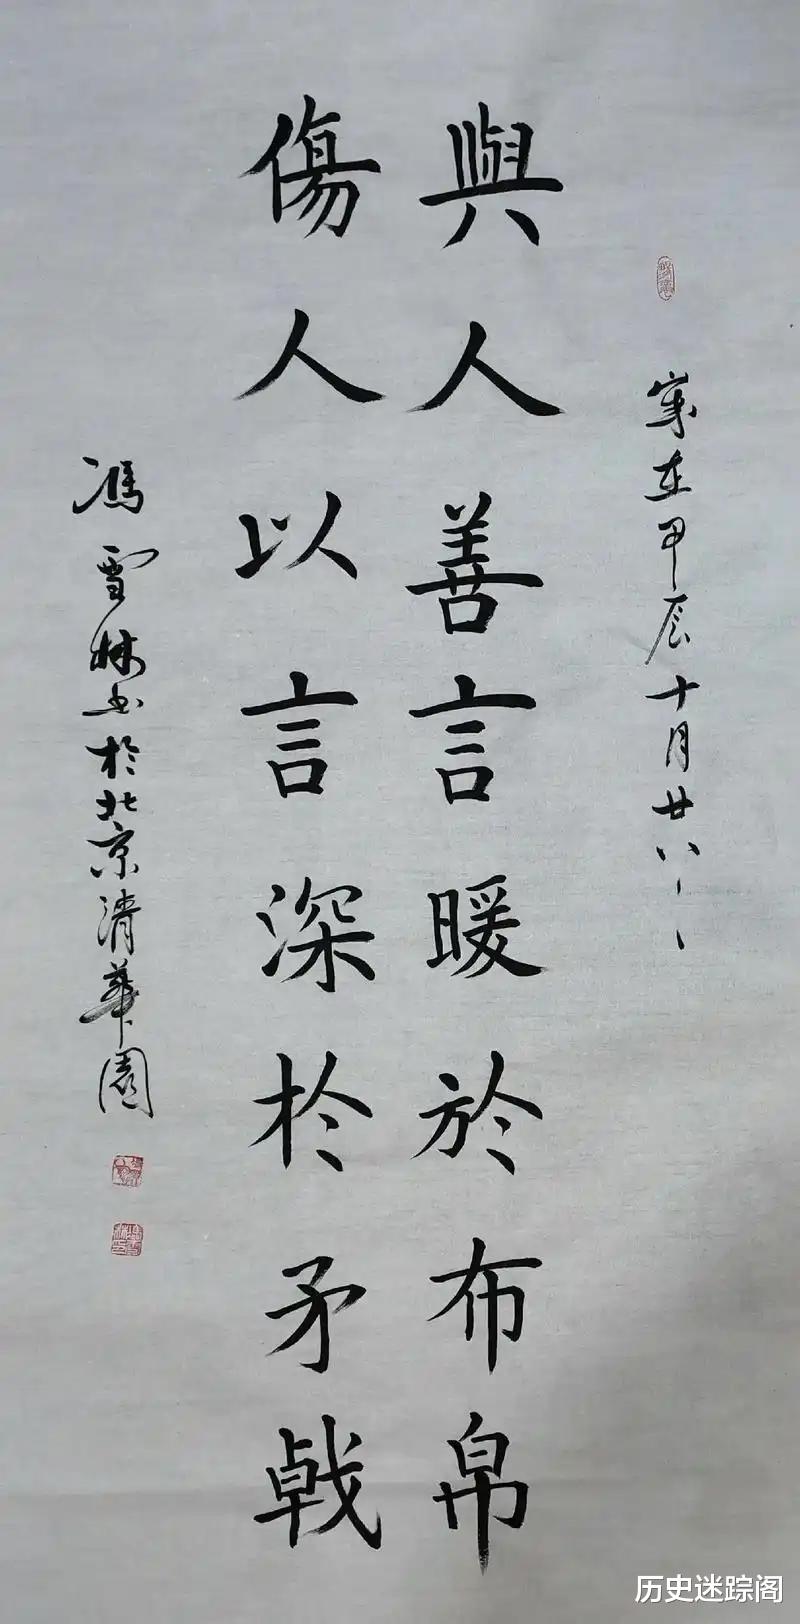 歲在甲辰十月廿八日
與人善言暖於布帛
傷人以言深於矛戟
馮雪林书於北京清華園
历史迷踪阁